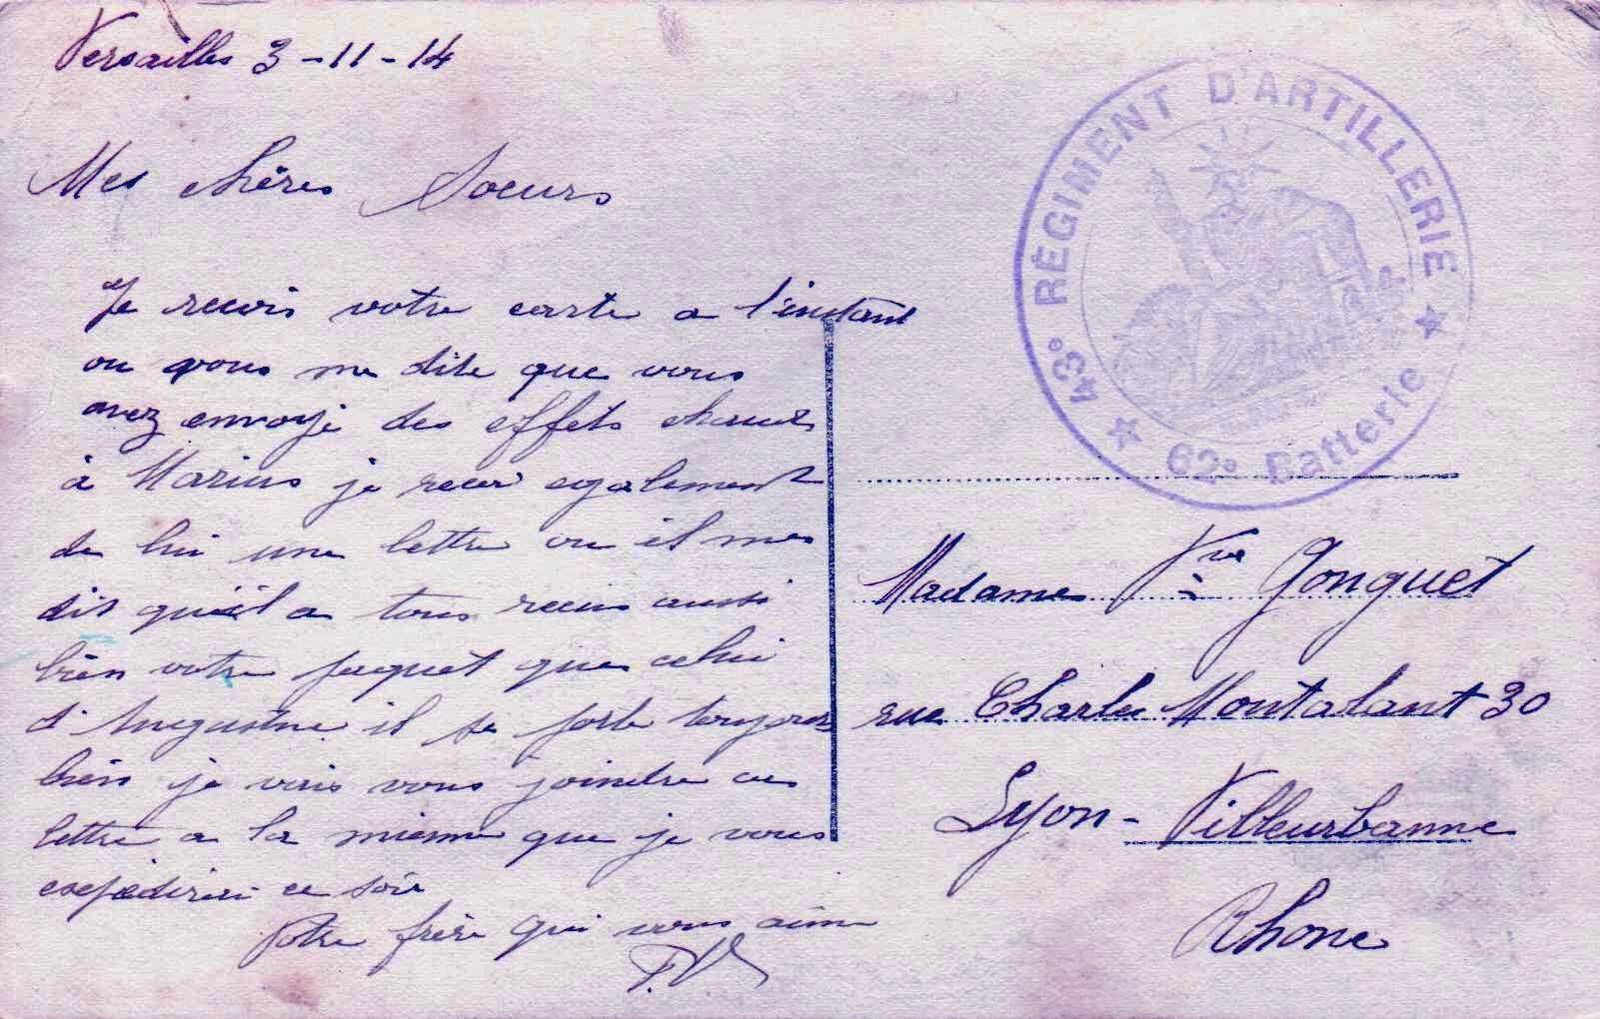 Versailles 3-11-14
Mes chères Soeurs
Je recois votre carte a l'instant
ou vous me dite que vous
avez envoyé des effets chauds
à Marius je recoi egalement
de lui une lettre ou il me
dit qu'il a tous recus aussi
bien votre paquet que celui
d'Augustine il se porte toujours
bien je vais vous joindre ces
lettre a la mienne que je vous
expédirai ce soir
Votre frère qui vous aime
43e RÉGIMENT D'ARTILLERIE
★ 62e Batterie ★
Madame Vve Gonguet
rue Charles Montaland 30
Lyon-Villeurbanne
Rhone